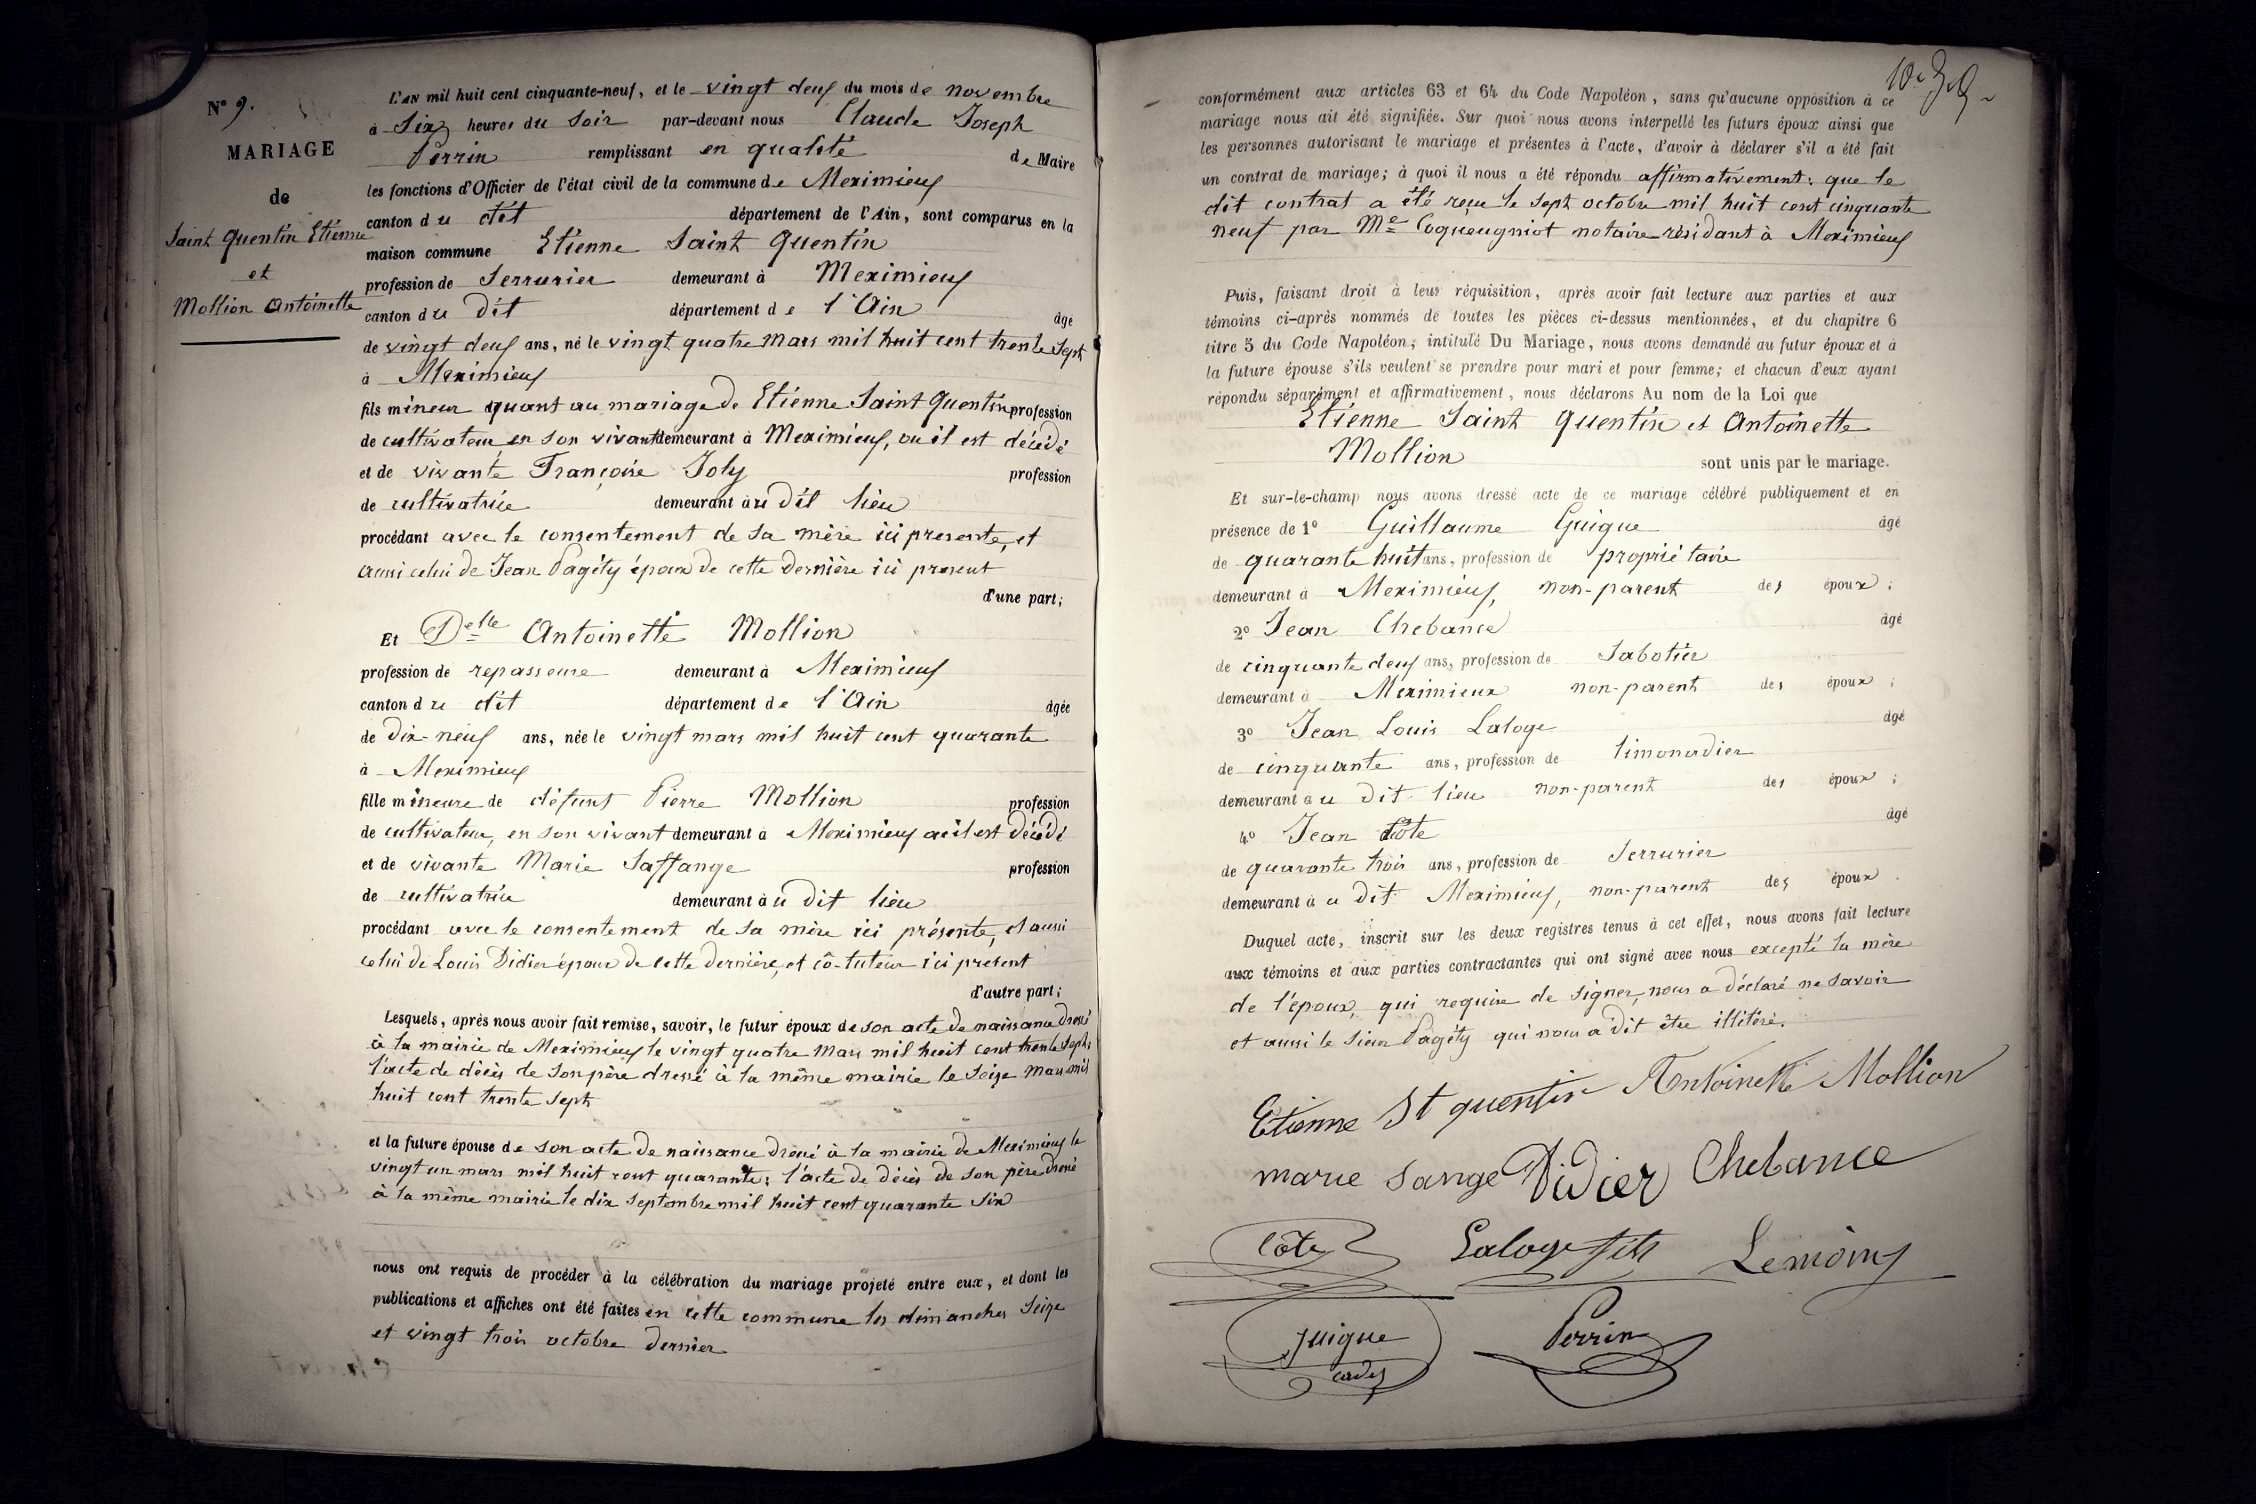 N° 9.
MARIAGE
de
Saint Quentin Etienne
et
Mollion Antoinette
L'AN mil huit cent cinquante-neuf, et le vingt deux du mois de novembre
à Six heures du Soir par-devant nous Claude Joseph
Perrin remplissant en qualité de Maire
les fonctions d'Officier de l'état civil de la commune de Meximieux
canton du dit département de l'Ain, sont comparus en la
maison commune Etienne Saint Quentin
profession de Serrurier demeurant à Meximieux
canton du dit département de l'Ain âgé
de vingt deux ans, né le vingt quatre Mars mil huit cent trente Sept
à Meximieux
fils mineur quant au mariage de Etienne Saint Quentin profession
de cultivateur en son vivant demeurant à Meximieux, où il est décédé
et de vivante Françoise Joly profession
de cultivatrice demeurant au dit lieu
procédant avec le consentement de sa mère ici presente, et
aussi celui de Jean Pagéty époux de cette dernière ici present
d'une part;
Et Delle Antoinette Mollion
profession de repasseuse demeurant à Meximieux
canton du dit département de l'Ain âgée
de dix-neuf ans, née le vingt mars mil huit cent quarante
à Meximieux
fille mineure de défunt Pierre Mollion profession
de cultivateur, en son vivant demeurant à Meximieux où il est décédé
et de vivante Marie Saffange profession
de cultivatrice demeurant au dit lieu
procédant avec le consentement de sa mère ici présente, et aussi
celui de Louis Didier époux de cette dernière, et cô-tuteur ici present
d'autre part;
Lesquels, après nous avoir fait remise, savoir, le futur époux de son acte de naissance dressé
à la mairie de Meximieux le vingt quatre Mars mil huit cent trente Sept;
l'acte de décès de son père dressé à la même mairie le Seize Mars mil
huit cent trente Sept
et la future épouse de son acte de naissance dressé à la mairie de Meximieux le
vingt un mars mil huit cent quarante; l'acte de décès de son père dressé
à la même mairie le dix septembre mil huit cent quarante Six
nous ont requis de procéder à la célébration du mariage projeté entre eux, et dont les
publications et affiches ont été faites en cette commune les dimanches Seize
et vingt trois octobre dernier
conformément aux articles 63 et 64 du Code Napoléon, sans qu'aucune opposition à ce
mariage nous ait été signifiée. Sur quoi nous avons interpellé les futurs époux ainsi que
les personnes autorisant le mariage et présentes à l'acte, d'avoir à déclarer s'il a été fait
un contrat de mariage; à quoi il nous a été répondu affirmativement: que le
dit contrat a été reçu le Sept octobre mil huit cent cinquante
neuf par Me Coqueugniot notaire résidant à Meximieux
Puis, faisant droit à leur réquisition, après avoir fait lecture aux parties et aux
témoins ci-après nommés de toutes les pièces ci-dessus mentionnées, et du chapitre 6
titre 5 du Code Napoléon, intitulé Du Mariage, nous avons demandé au futur époux et à
la future épouse s'ils veulent se prendre pour mari et pour femme; et chacun d'eux ayant
répondu séparément et affirmativement, nous déclarons Au nom de la Loi que
Etienne Saint Quentin et Antoinette
Mollion sont unis par le mariage.
Et sur-le-champ nous avons dressé acte de ce mariage célébré publiquement et en
présence de 1° Guillaume Guigue âgé
de quarante huit ans, profession de propriétaire
demeurant à Meximieux, non-parent des époux;
2° Jean Chebance âgé
de cinquante deux ans, profession de Sabotier
demeurant à Meximieux non-parent des époux;
3° Jean Louis Laloge âgé
de cinquante ans, profession de limonadier
demeurant au dit lieu non-parent des époux;
4° Jean Côte âgé
de quarante trois ans, profession de Serrurier
demeurant à u dit Meximieux, non-parent des époux.
Duquel acte, inscrit sur les deux registres tenus à cet effet, nous avons fait lecture
aux témoins et aux parties contractantes qui ont signé avec nous excepté la mère
de l'époux, qui requise de signer, nous a déclaré ne savoir
et aussi le Sieur Pagéty qui nous a dit être illitéré.
Etienne St quentin Antoinette Mollion
marie sange Didier Chebance
Côte Laloge fils Lemoine
guigue Perrin